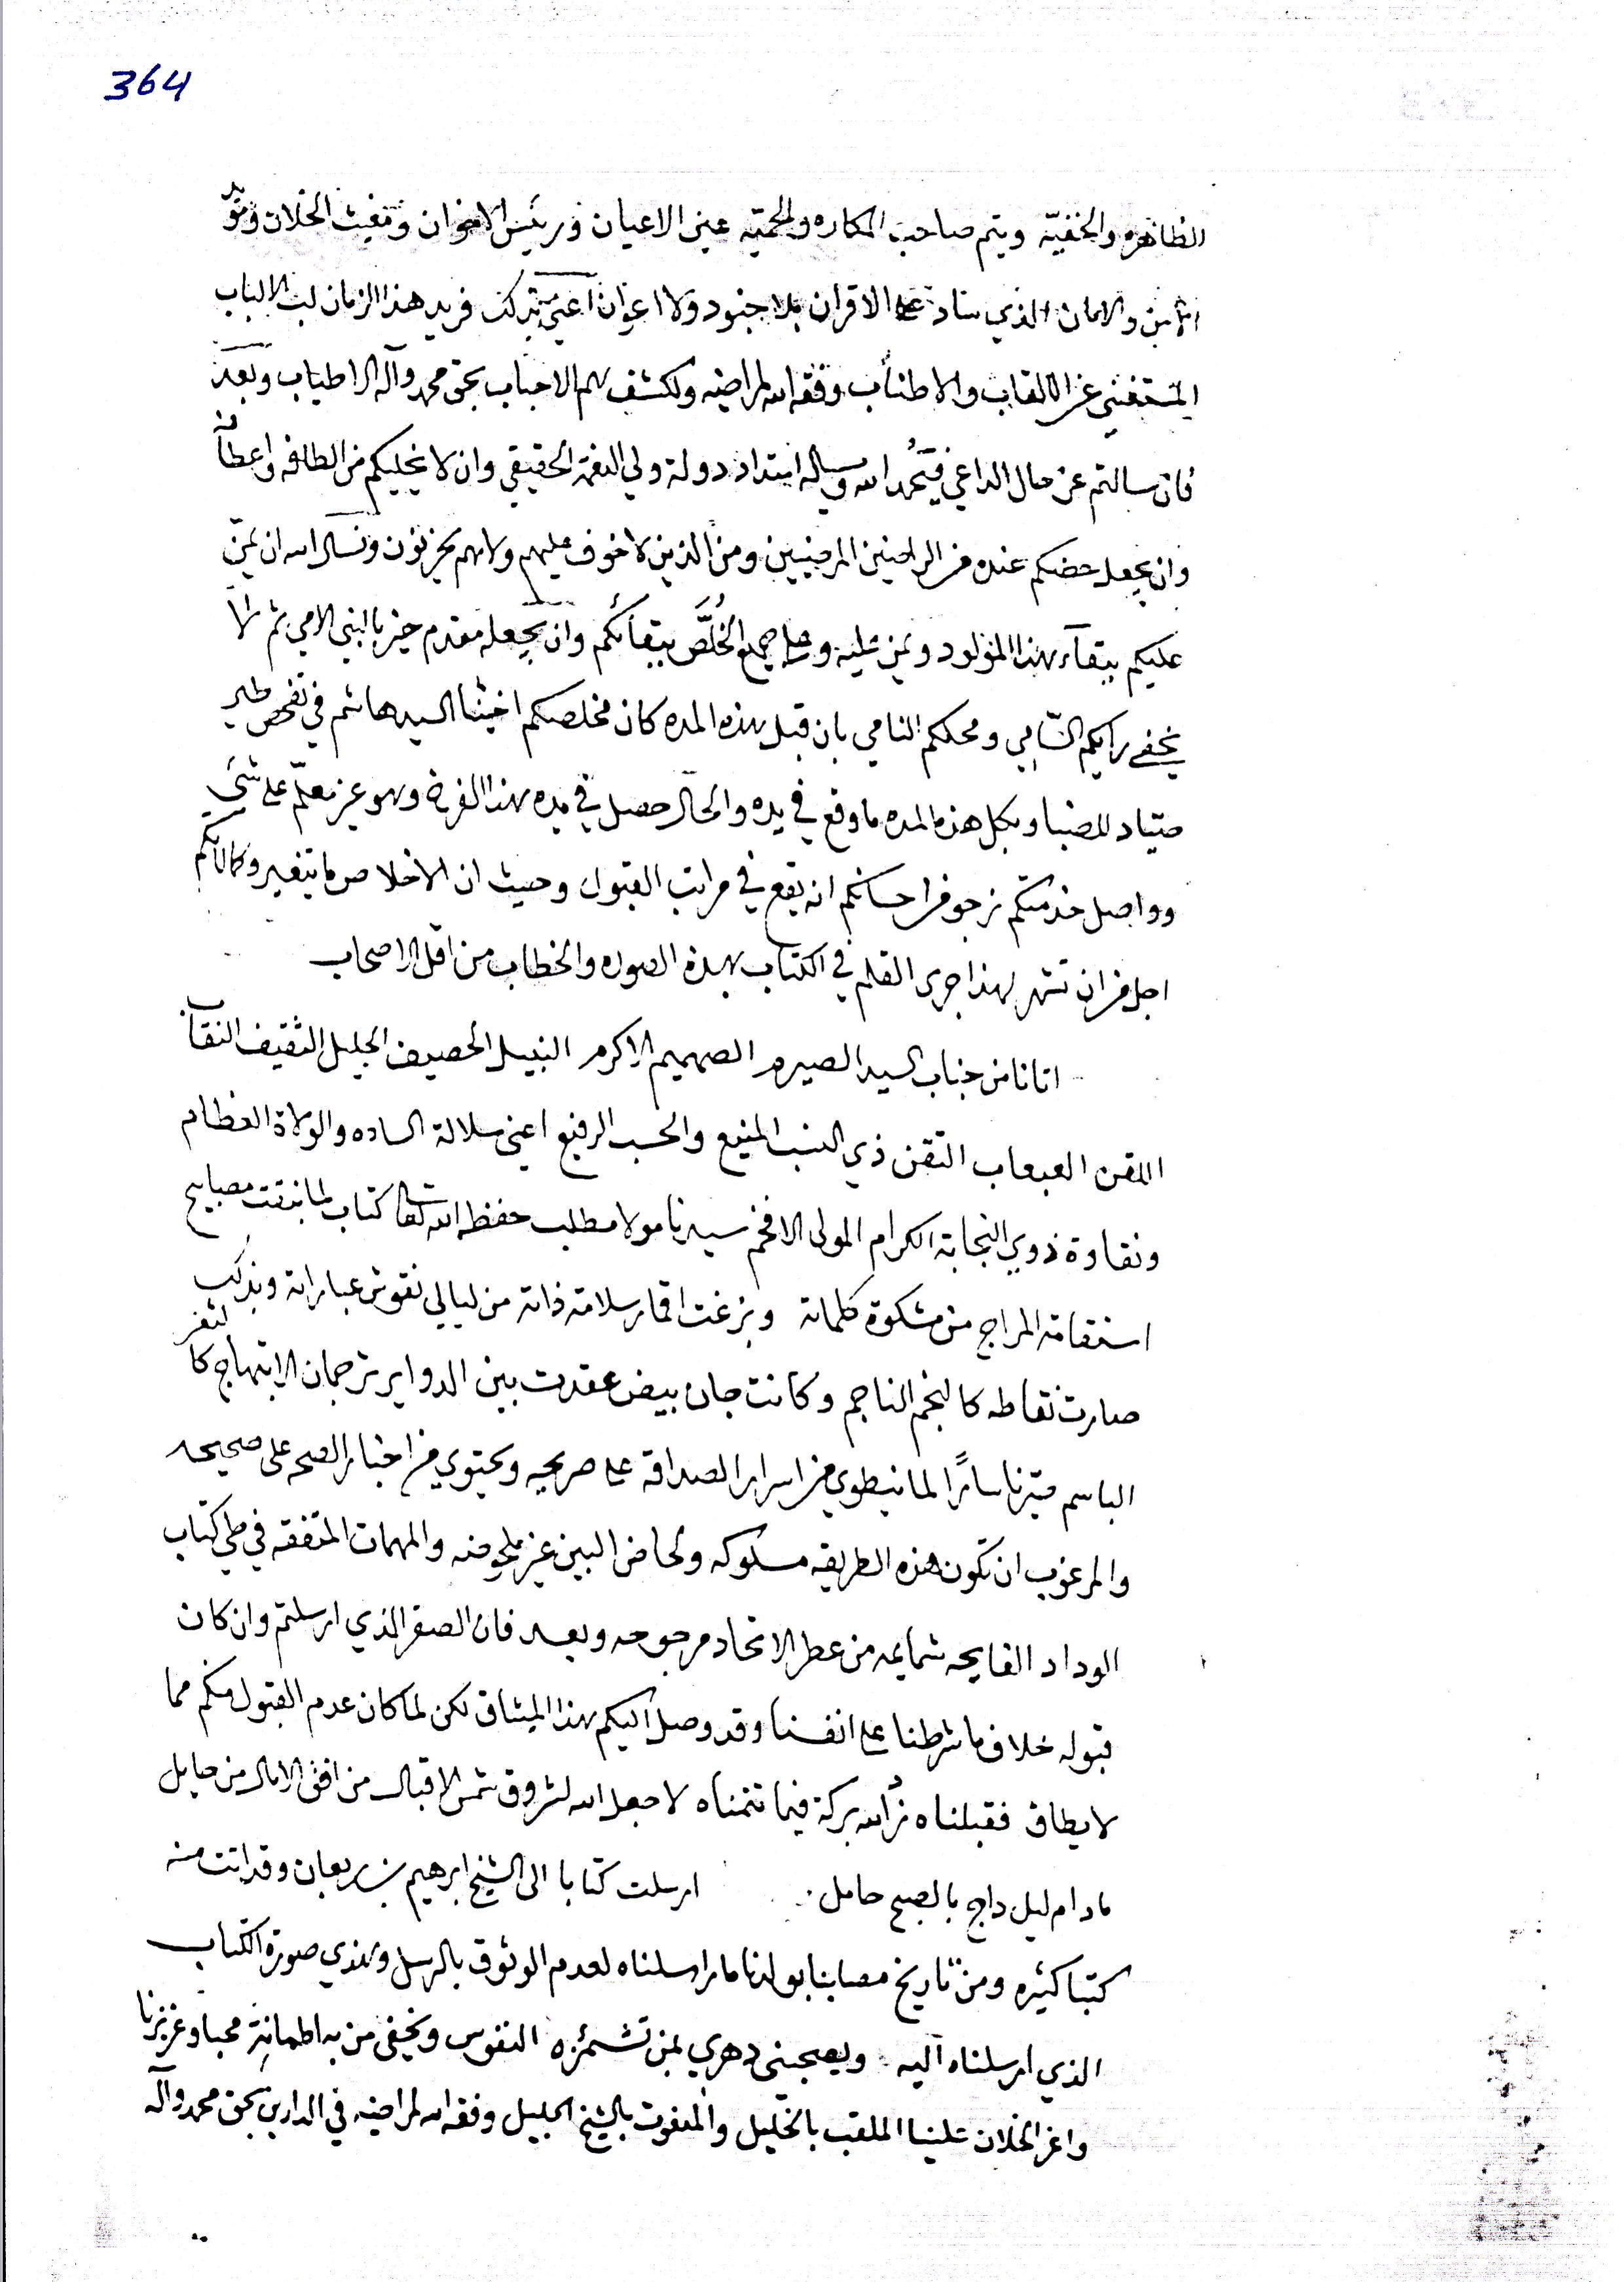 364
الظاهره والخفيّة ويتم صاحب المكاره والحميّه عين الاعيان ورئيس الاخوان ومغيث الخلان
والامان الذي ساد على الاقران بلا جنود ولا اعوان اعني بتركي فريد هذا الزمان لب الالباب
المستغني عن الالقاب والاطناب وفقه الله لمراضيه ولكشف هم الاحباب بحق محمد وآله الاطياب وبعد
فان سالتم عن حال الداعي فيحمد الله ويساله امتداد دولة ولي النعمة الحقيقي وان لا يخليكم من الطافه واعطا
وان يجعل حضكم عنده من الراضين المرضيين ومن الذين لا خوف عليهم ولا هم يحزنون ونسال الله ان يمنّ
عليكم ببقاء هذا المولود ويمن عليه وعلى جميع الخُلَّص ببقائكم وان يجعله مقدم خير بالنبي الامي ثم لا
يخفى رايكم السّامي ومحلكم النامي بان قبل هذه المده كان مخلصكم اخينا السيد هاشم في تفحص طير
صياد للضبا وبكل هذه المده ما وقع في يده والحال حصل في يده هذا الفرخ وهو غير معلّم على شي
وواصل خدمتكم نرجو من احسانكم انه يقع في مراتب القبول وحيث ان الاخلاص ما يتغير وكمالاتكم
اجل من ان تشهر لهذا جرى القلم في الكتاب بهذه الصوره والخطاب من اقل الاصحاب
اتانا من جناب السيد الصيرم الصهميم الاكرم النبيل الحصيف الجليل الثقيف النقاب
العبعاب التقن ذي النسب المنيع والحسب الرفيع اعني سلالة الساده والولاة العظام
ونقاوة ذوي النجابة الكرام المولى الافخم سيدنا مولا مطلب حفظه الله تعالى كتاب لما نبقت مصابيح
استقامة المزاج من مشكوة كلماته وبزغت اقمار سلامة ذاته من ليالي نقوش عباراته وبذلك
صارت نقاطه كالنجم الناجم وكانت جان بيض عقدت بين الدواير ترجمان الابتهاج كالثغر
الباسم سارًا لما ينطوي من اسرار الصداقة على صريحه ويحتوي من اخبار الصحه على صحيحه
والمرغوب ان تكون هذه الطريقه مسلوكه والمهمات المتفقه في طي كتاب
الوداد الفايحه شمايمه من عطر الاتحاد مرجوحه وبعد فان الصقر الذي ارسلتم وان كان
قبوله خلاف ما شرطنا على انفسنا وقد وصل اليكم بهذا الميثاق لكن لما كان عدم القبول منكم مما
لا يطاق فقبلناه بركة فيما تتمناه لا جعل الله لشروق شمس الاقبال من افق الامال من حايل
مادام ليل داج بالصبح حامل. ارسلت كتابا الى الشيخ ابرهيم بن ربعان وقد اتت منه
كتبا كثيره ومن تاريخ مصابنا بولدنا ما راسلناه لعدم الوثوق بالرسل وهذي صورة الكتاب
الذي ارسلناه اليه ويعجبني دهري بمن تشمئزه النفوس ويخفي من به اطمانت محبا وعزيزنا
واعز الخلان علينا الملقب بالخليل والمنعوت بالشيخ الجليل وفقه الله لمراضيه في الدارين بحق محمد وآله